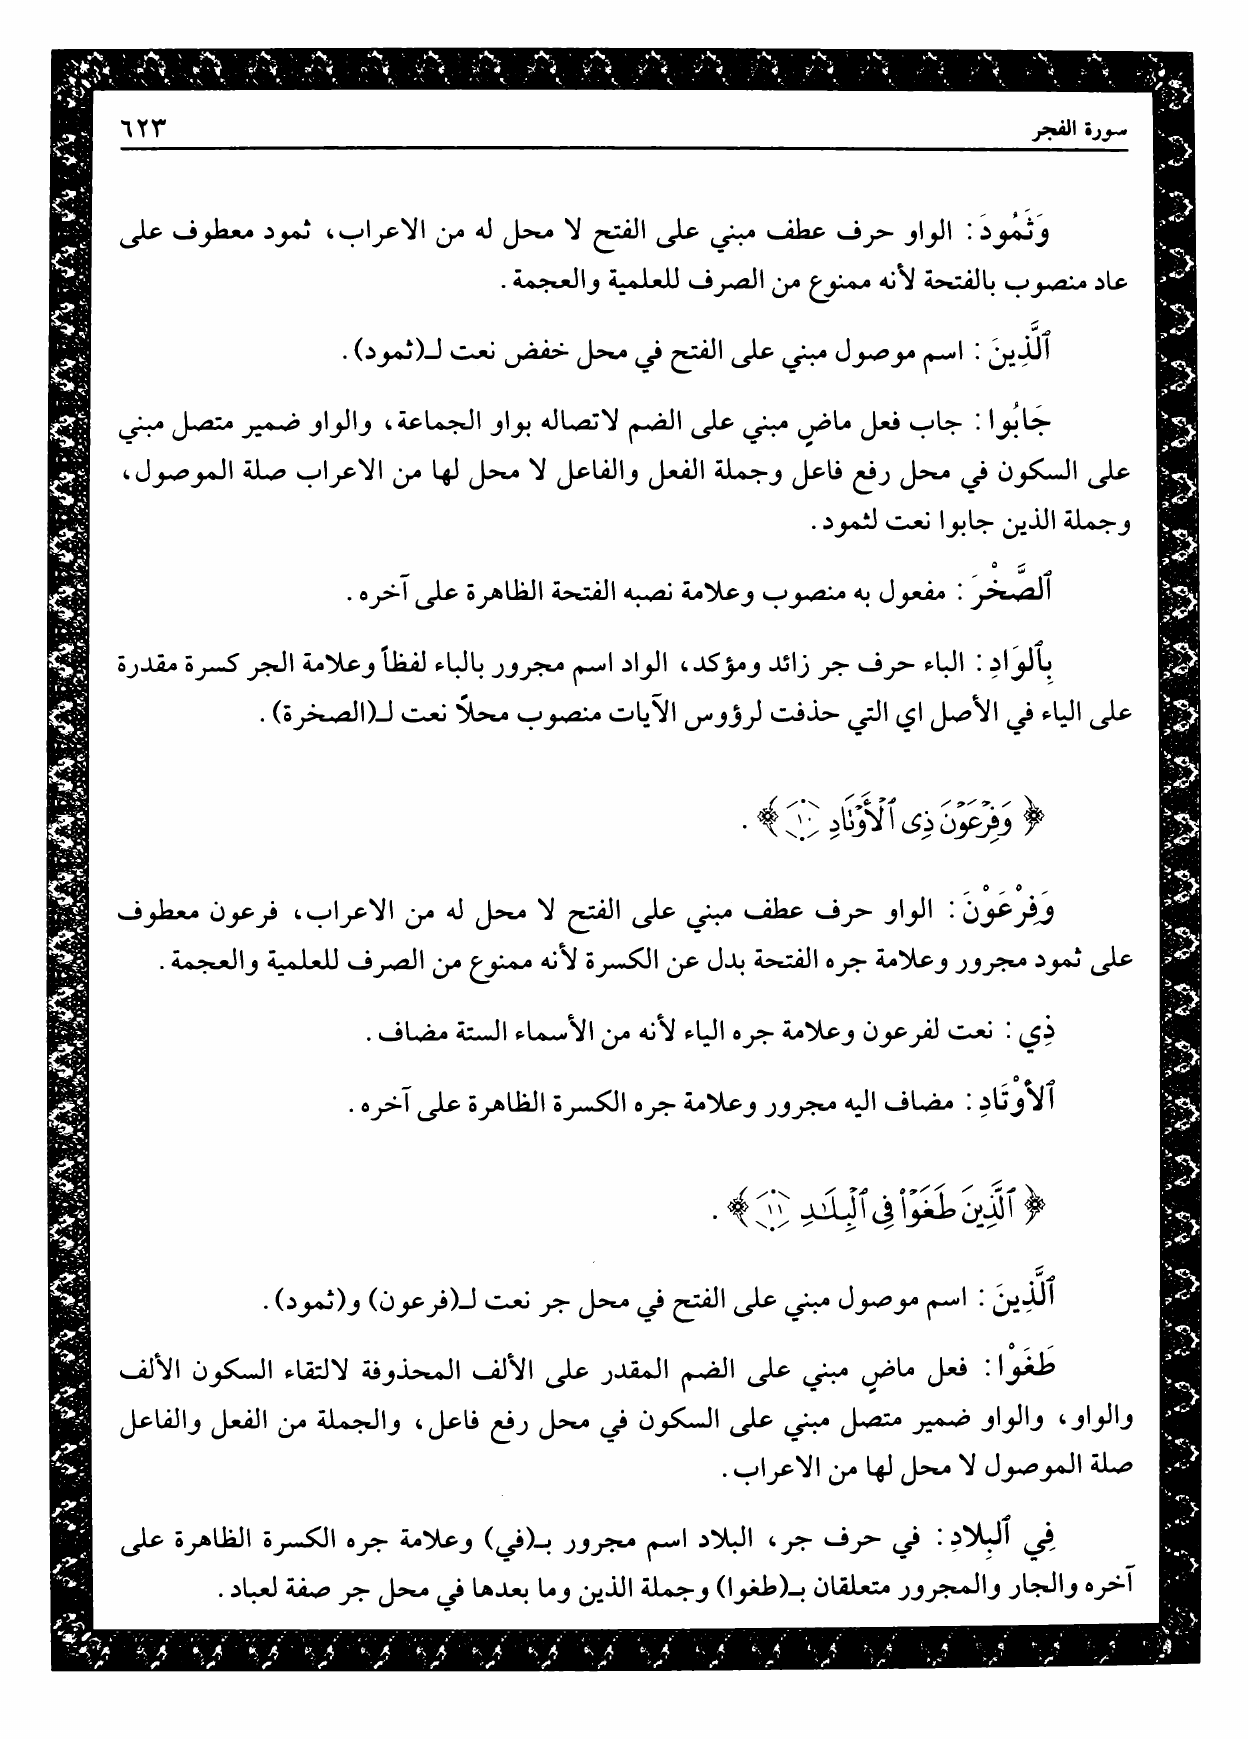 سورة الفجر
٦٢٣
وَثَمُودَ: الواو حرف عطف مبني على الفتح لا محل له من الاعراب، ثمود معطوف على
عاد منصوب بالفتحة لأنه ممنوع من الصرف للعلمية والعجمة.
ٱلَّذِينَ: اسم موصول مبني على الفتح في محل خفض نعت لـ(ثمود).
جَابُوا: جاب فعل ماضٍ مبني على الضم لاتصاله بواو الجماعة، والواو ضمير متصل مبني
على السكون في محل رفع فاعل وجملة الفعل والفاعل لا محل لها من الاعراب صلة الموصول،
وجملة الذين جابوا نعت لثمود.
ٱلصَّخْرَ: مفعول به منصوب وعلامة نصبه الفتحة الظاهرة على آخره.
بِٱلوَادِ: الباء حرف جر زائد ومؤكد، الواد اسم مجرور بالباء لفظاً وعلامة الجر كسرة مقدرة
على الياء في الأصل اي التي حذفت لرؤوس الآيات منصوب محلاً نعت لـ(الصخرة).
﴿ وَفِرْعَوْنَ ذِى ٱلْأَوْتَادِ ١٠ ﴾.
وَفِرْعَوْنَ: الواو حرف عطف مبني على الفتح لا محل له من الاعراب، فرعون معطوف
على ثمود مجرور وعلامة جره الفتحة بدل عن الكسرة لأنه ممنوع من الصرف للعلمية والعجمة.
ذِي: نعت لفرعون وعلامة جره الياء لأنه من الأسماء الستة مضاف.
ٱلأوْتَادِ: مضاف اليه مجرور وعلامة جره الكسرة الظاهرة على آخره.
﴿ ٱلَّذِينَ طَغَوْا۟ فِى ٱلْبِلَـٰدِ ١١ ﴾.
ٱلَّذِينَ: اسم موصول مبني على الفتح في محل جر نعت لـ(فرعون) و(ثمود).
طَغَوْا: فعل ماضٍ مبني على الضم المقدر على الألف المحذوفة لالتقاء السكون الألف
والواو، والواو ضمير متصل مبني على السكون في محل رفع فاعل، والجملة من الفعل والفاعل
صلة الموصول لا محل لها من الاعراب.
فِي ٱلبِلادِ: في حرف جر، البلاد اسم مجرور بـ(في) وعلامة جره الكسرة الظاهرة على
آخره والجار والمجرور متعلقان بـ(طغوا) وجملة الذين وما بعدها في محل جر صفة لعباد.